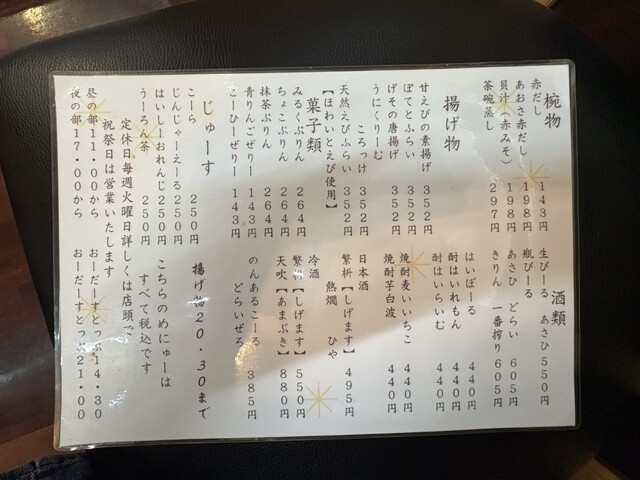 椀物
赤だし 143円
あおさ赤だし 198円
貝汁(赤みそ) 198円
茶碗蒸し 297円
揚げ物
甘えびの素揚げ 352円
ぽてとふらい 352円
げその唐揚げ 352円
うにくりーむ
ころっけ 352円
天然えびふらい 352円
【ほわいとえび使用】
菓子類
みるくぷりん 264円
ちょこぷりん 264円
抹茶ぷりん 264円
青りんごぜりー 143円
こーひーぜりー 143円
じゅーす
こーら 250円
じんじゃーえーる 250円
はいしーおれんじ 250円
うーろん茶 250円
定休日毎週火曜日詳しくは店頭で
祝祭日は営業いたします
昼の部11・00から おーだーすとっぷ14・30
夜の部17・00から おーだーすとっぷ21・00
酒類
生びーる あさひ 550円
瓶びーる
あさひ どらい 605円
きりん 一番搾り 605円
はいぼーる 440円
酎はいれもん 440円
酎はいらいむ 440円
焼酎麦いいちこ 440円
焼酎芋白波 440円
日本酒
繁桝【しげます】 495円
熱燗 ひや
冷酒
繁桝【しげます】 550円
天吹【あまぶき】 880円
のんあるこーる
どらいぜろ 385円
揚げ物20・30まで
こちらのめにゅーは
すべて税込です